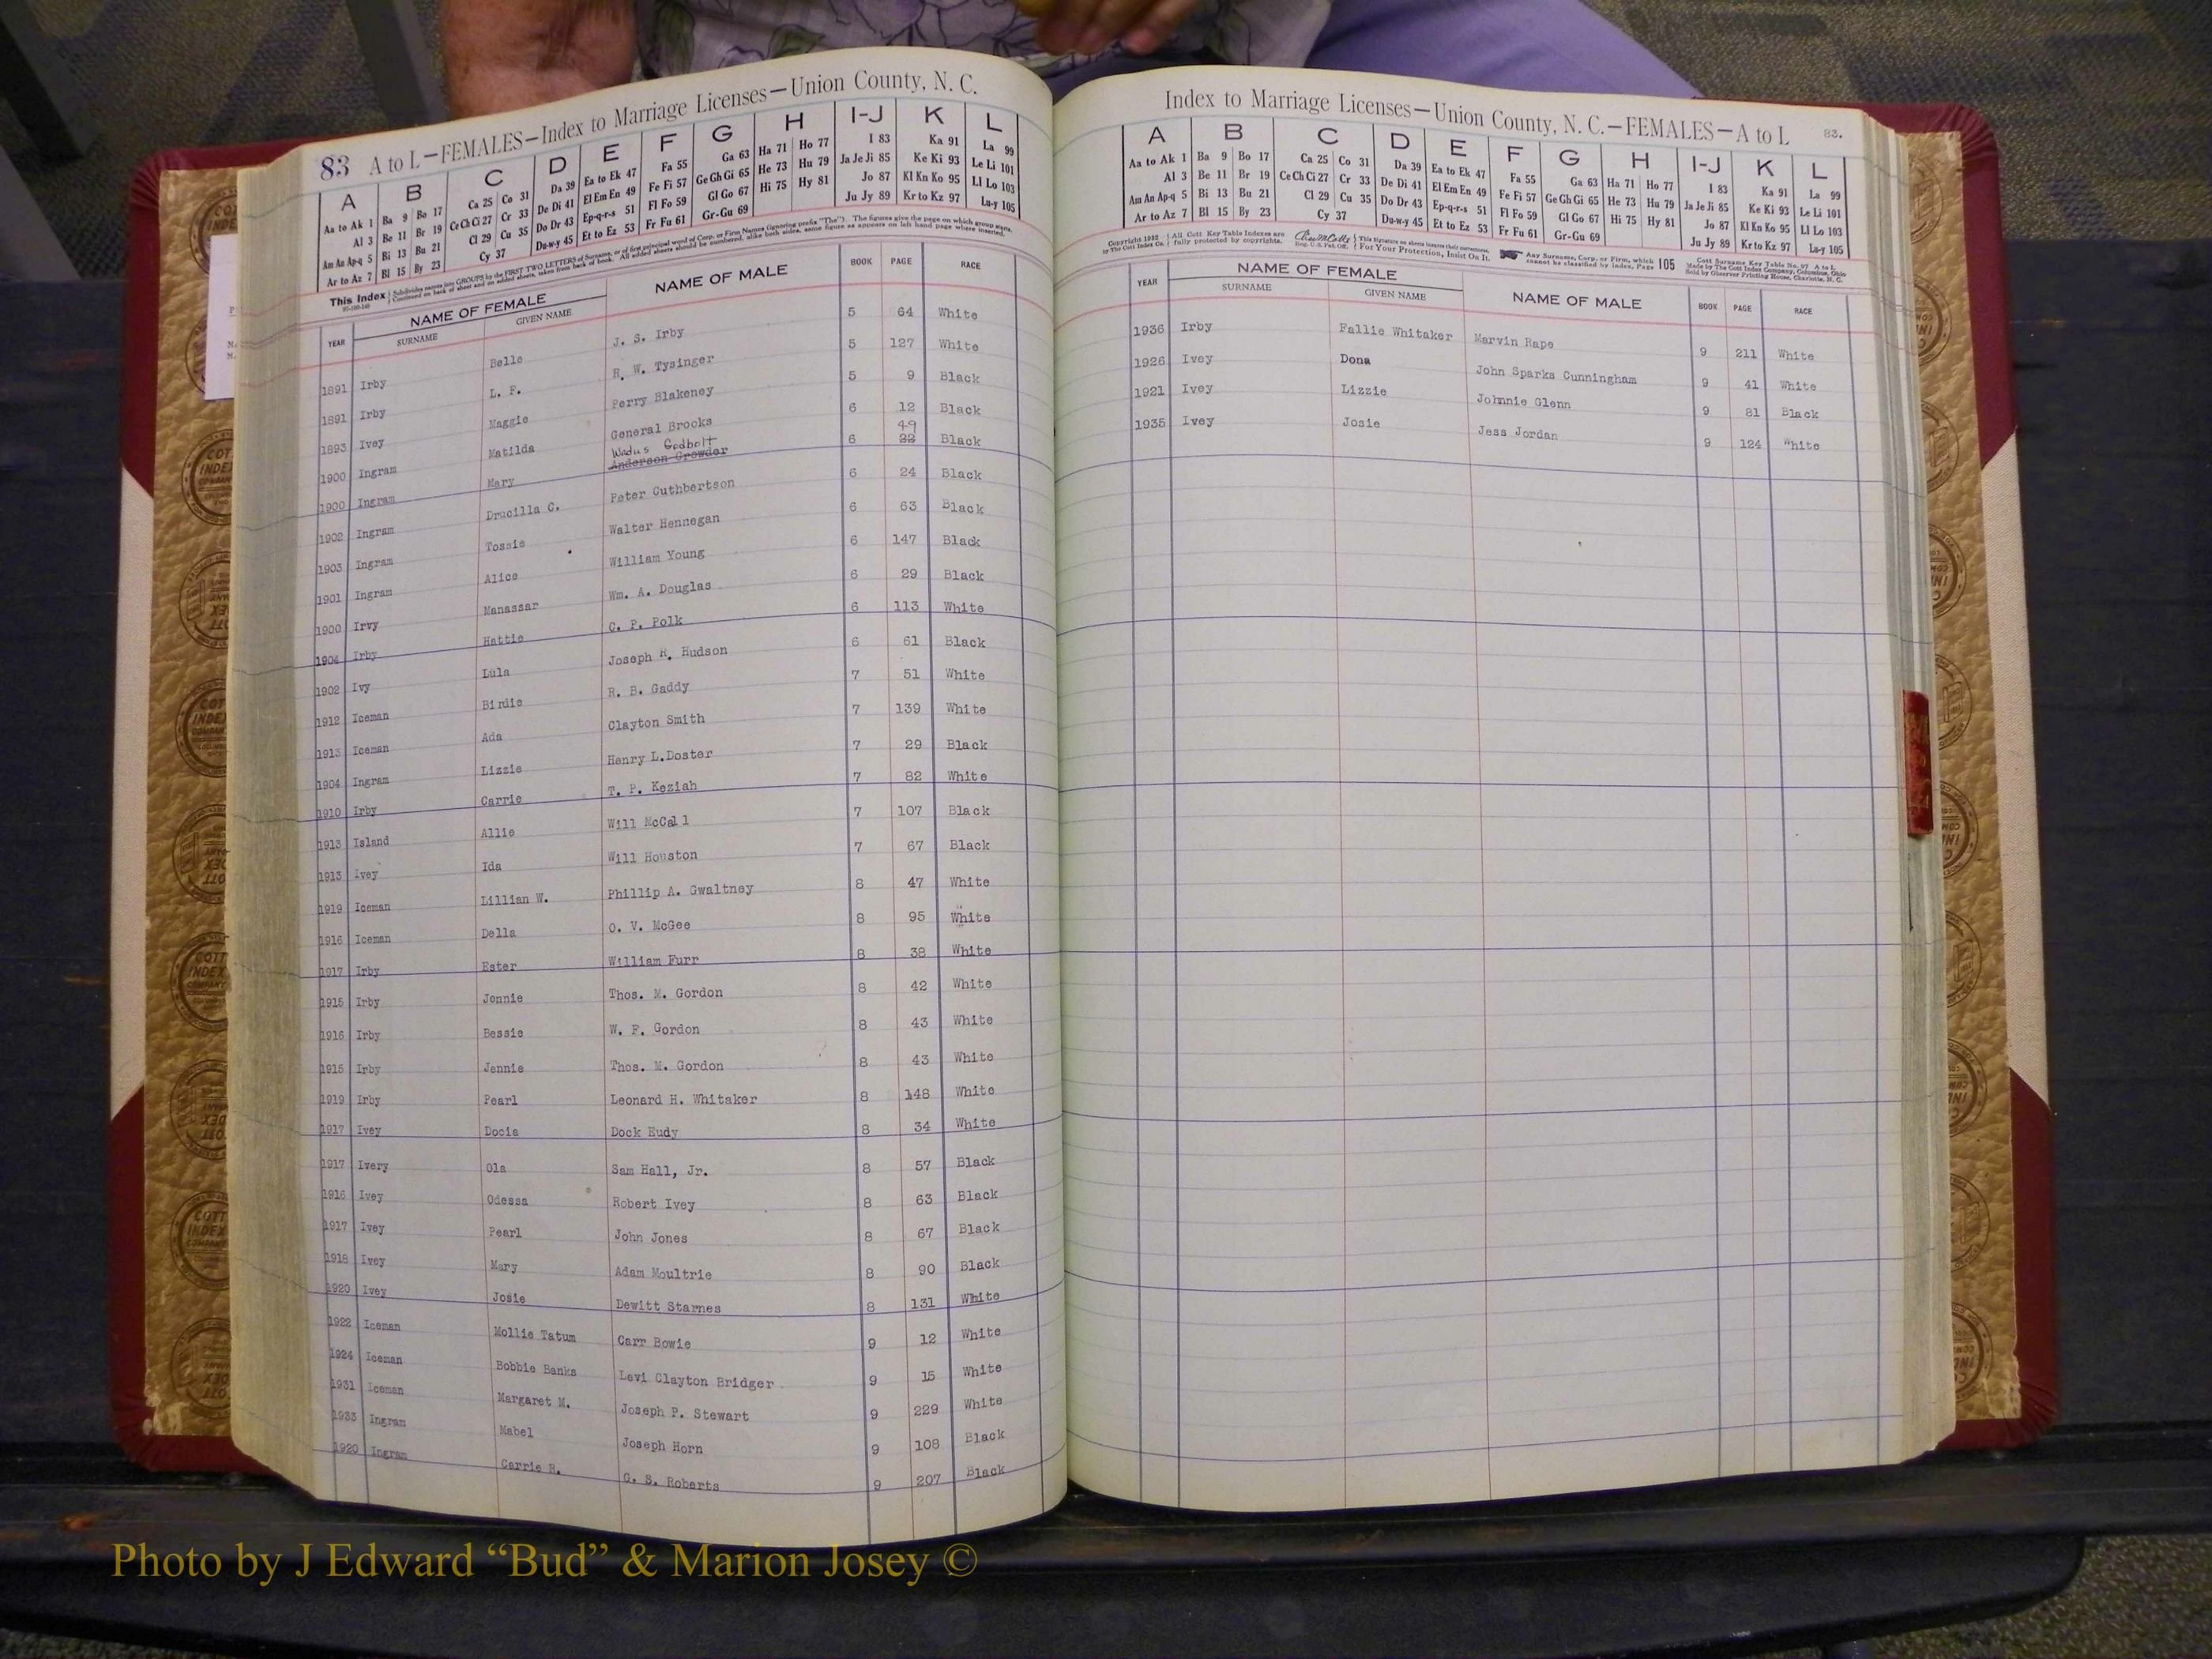 83 A to L—FEMALES—Index to Marriage Licenses—Union County, N. C.
A B C D E F G H I-J K L
Aa to Ak 1 Ba 9 Bo 17 Ca 25 Co 31 Da 39 Ea to Ek 47 Fa 55 Ga 63 Ha 71 Ho 77 I 83 Ka 91 La 99
Al 3 Be 11 Br 19 Ce Ch Ci 27 Cr 33 De Di 41 El Em En 49 Fe Fi 57 Ge Gh Gi 65 He 73 Hu 79 Ja Je Ji 85 Ke Ki 93 Le Li 101
Am An Ap-q 5 Bi 13 Bu 21 Cl 29 Cu 35 Do Dr 43 Ep-q-r-s 51 Fl Fo 59 Gl Go 67 Hi 75 Hy 81 Jo 87 Kl Kn Ko 95 Ll Lo 103
Ar to Az 7 Bl 15 By 23 Cy 37 Du-w-y 45 Et to Ez 53 Fr Fu 61 Gr-Gu 69 Ju Jy 89 Kr to Kz 97 Lu-y 105
This Index Subdivides names into GROUPS by the FIRST TWO LETTERS of Surname, or of first principal word of Corp. or Firm Names (ignoring prefix "The"). The figures give the page on which group starts.
Continued on back of sheet and on added sheets, taken from back of book. All added sheets should be numbered, alike both sides, same figure as appears on left hand page where inserted.
YEAR NAME OF FEMALE SURNAME GIVEN NAME NAME OF MALE BOOK PAGE RACE
1891 Irby Belle J. S. Irby 5 64 White
1891 Irby L. F. R. W. Tysinger 5 127 White
1893 Ivey Maggie Perry Blakeney 5 9 Black
1900 Ingram Matilda General Brooks 6 12 Black
Wadus Godbolt 49
1900 Ingram Mary Anderson Crowder 6 22 Black
1902 Ingram Drucilla C. Peter Cuthbertson 6 24 Black
1903 Ingram Tossie Walter Hennegan 6 63 Black
1901 Ingram Alice William Young 6 147 Black
1900 Irvy Manassar Wm. A. Douglas 6 29 Black
1904 Irby Hattie C. P. Polk 6 113 White
1902 Ivy Lula Joseph R. Hudson 6 61 Black
1912 Iceman Birdie R. B. Gaddy 7 51 White
1913 Iceman Ada Clayton Smith 7 139 White
1904 Ingram Lizzie Henry L.Doster 7 29 Black
1910 Irby Carrie T. P. Keziah 7 82 White
1913 Island Allie Will McCall 7 107 Black
1913 Ivey Ida Will Houston 7 67 Black
1919 Iceman Lillian W. Phillip A. Gwaltney 8 47 White
1916 Iceman Della O. V. McGee 8 95 White
1917 Irby Ester William Furr 8 38 White
1915 Irby Jennie Thos. M. Gordon 8 42 White
1916 Irby Bessie W. F. Gordon 8 43 White
1915 Irby Jennie Thos. M. Gordon 8 43 White
1919 Irby Pearl Leonard H. Whitaker 8 148 White
1917 Ivey Docia Dock Eudy 8 34 White
1917 Ivery Ola Sam Hall, Jr. 8 57 Black
1916 Ivey Odessa Robert Ivey 8 63 Black
1917 Ivey Pearl John Jones 8 67 Black
1918 Ivey Mary Adam Moultrie 8 90 Black
1920 Ivey Josie Dewitt Starnes 8 131 White
1922 Iceman Mollie Tatum Carr Bowie 9 12 White
1924 Iceman Bobbie Banks Levi Clayton Bridger 9 15 White
1931 Iceman Margaret M. Joseph P. Stewart 9 229 White
1933 Ingram Mabel Joseph Horn 9 108 Black
1920 Ingram Carrie R. G. S. Roberts 9 207 Black
Index to Marriage Licenses—Union County, N. C.—FEMALES—A to L 83.
A B C D E F G H I-J K L
Aa to Ak 1 Ba 9 Bo 17 Ca 25 Co 31 Da 39 Ea to Ek 47 Fa 55 Ga 63 Ha 71 Ho 77 I 83 Ka 91 La 99
Al 3 Be 11 Br 19 Ce Ch Ci 27 Cr 33 De Di 41 El Em En 49 Fe Fi 57 Ge Gh Gi 65 He 73 Hu 79 Ja Je Ji 85 Ke Ki 93 Le Li 101
Am An Ap-q 5 Bi 13 Bu 21 Cl 29 Cu 35 Do Dr 43 Ep-q-r-s 51 Fl Fo 59 Gl Go 67 Hi 75 Hy 81 Jo 87 Kl Kn Ko 95 Ll Lo 103
Ar to Az 7 Bl 15 By 23 Cy 37 Du-w-y 45 Et to Ez 53 Fr Fu 61 Gr-Gu 69 Ju Jy 89 Kr to Kz 97 Lu-y 105
Copyright 1932 by The Cott Index Co. All Cott Key Table Indexes are fully protected by copyrights. Reg. U.S. Pat. Off. For Your Protection, Insist On It. Any Surname, Corp. or Firm, which cannot be classified by index, Page 105 Cott Surname Key Table No. 97 A to L Made by The Cott Index Company, Columbus, Ohio Sold by Observer Printing House, Charlotte, N. C.
YEAR NAME OF FEMALE SURNAME GIVEN NAME NAME OF MALE BOOK PAGE RACE
1936 Irby Fallie Whitaker Marvin Rape 9 211 White
1926 Ivey Dona John Sparks Cunningham 9 41 White
1921 Ivey Lizzie Johnnie Glenn 9 81 Black
1935 Ivey Josie Jess Jordan 9 124 "hite
Photo by J Edward “Bud” & Marion Josey ©